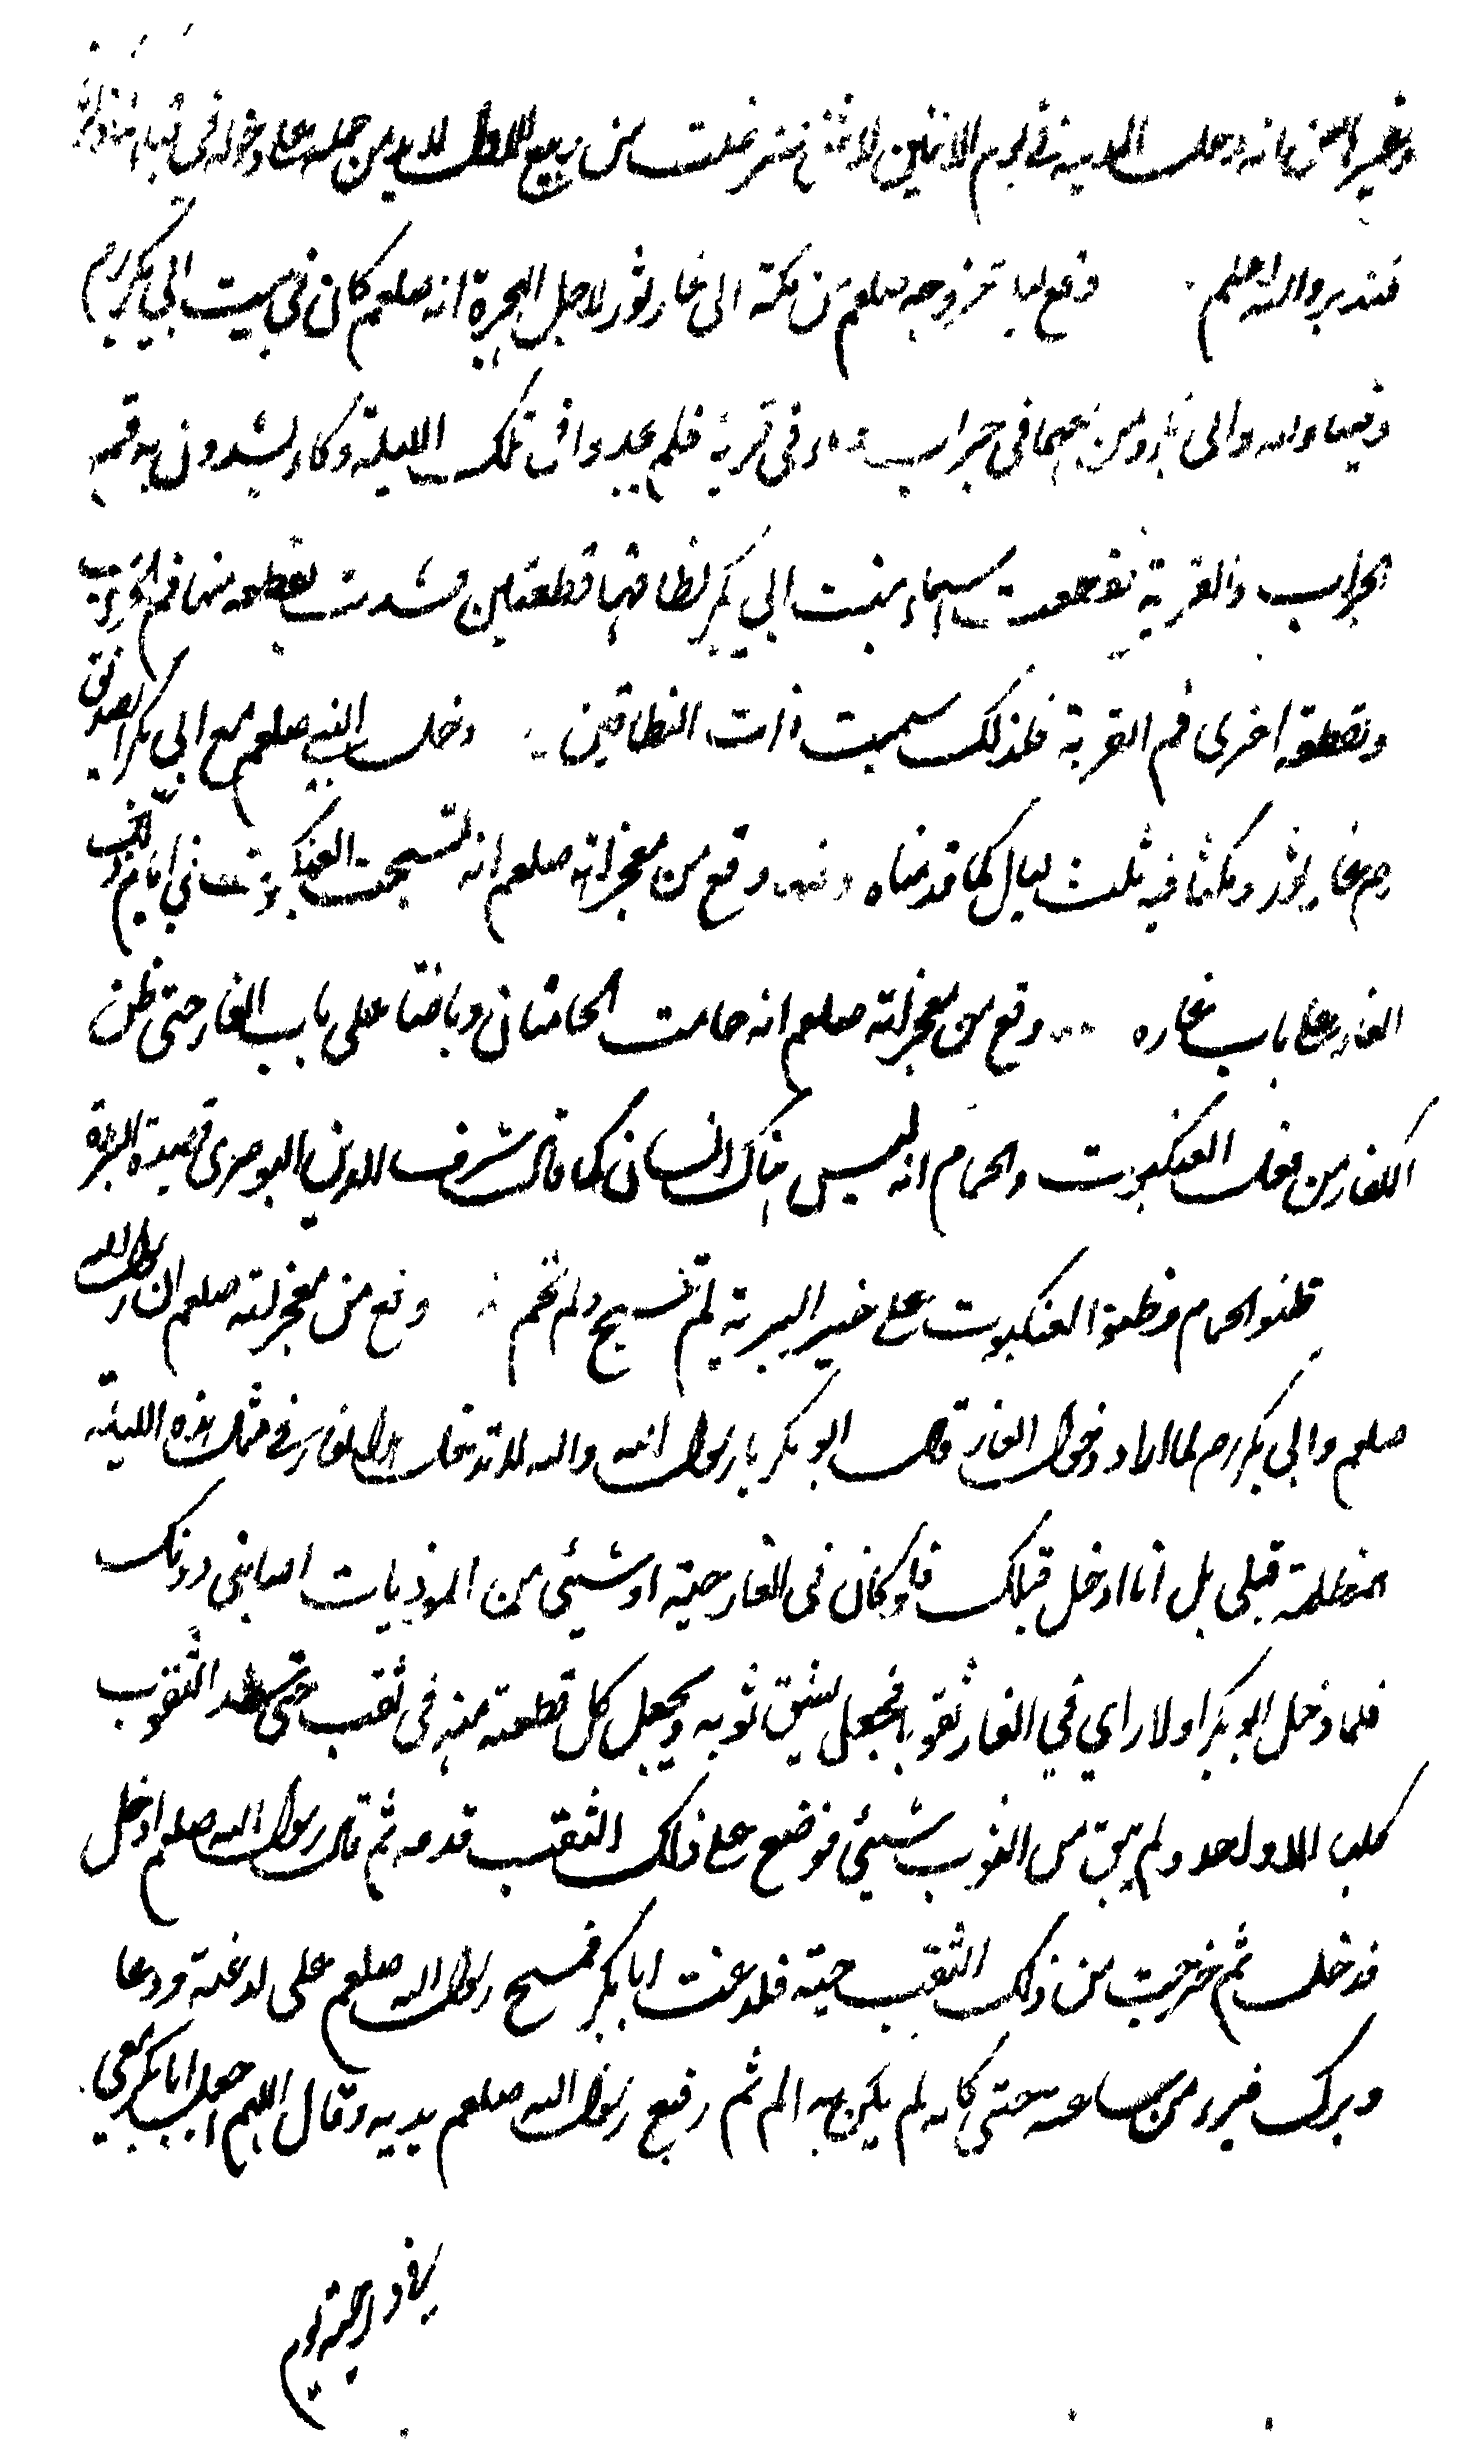 وغيره من انه دخل المدينة في يوم الاثنين لاثنتي عشر خلت من ربيع الاول لا بد من حمله على دخوله في قباء
فتدبر والله اعلم وقع ليلة خروجه صلعم من مكة الى غار ثور لاجل الهجرة انه صلعم كان في بيت ابي بكر رض
في جراب وفي قربة فلم يجدوا في تلك الليلة وكاء يشدون به فم
الجراب والقربة فقطعت اسماء بنت ابي بكر نطاقها قطعتين وشدت بقطعة منها فم الجراب
وبقطعة اخرى فم القربة فلذلك سميت ذات النطاقين دخل النبي صلعم مع ابي بكر الصديق
رض غار ثور ومكثا فيه ثلث ليال كما قدمناه وقع من معجزاته صلعم انه نسجت العنكبوت في
الغار على باب غاره وقع من معجزاته صلعم انه حامت الحمامتان وباضتا على باب الغار حتى ظن
الكفار من فعل العنكبوت والحمام انه ليس هناك انسان كما قال شرف الدين البوصري قصيدة البردة
ظنوا الحمام وظنوا العنكبوت على خير البرية لم تنسج ولم تحم وقع من معجزاته صلعم ان رسول الله
صلعم وابي بكر رض لما ارادا دخول الغار قال ابو بكر يا رسول الله والله لا تدخل الغار في مثل هذه الليلة
المظلمة قبلي بل انا ادخل قبلك فلو كان في الغار حية او شيئ من الموذيات اصابني دونك
فلما دخل ابو بكر اولا راي في الغار ثقوبا فجعل يشق ثوبه ويجعل كل قطعة منه في ثقب حتى سد الثقوب
كلها الا واحد ولم يبق من الثوب شيئ فوضع على ذلك الثقب قدمه ثم قال رسول الله صلعم ادخل
فدخل ثم خرجت من ذلك الثقب حية فلدغت ابا بكر فمسح رسول الله صلعم على لدغته ودعا
وبرك فبرء من ساعته حتى كانه لم يكن به الم ثم رفع رسول الله صلعم يديه وقال اللهم اجعل ابا بكر معي